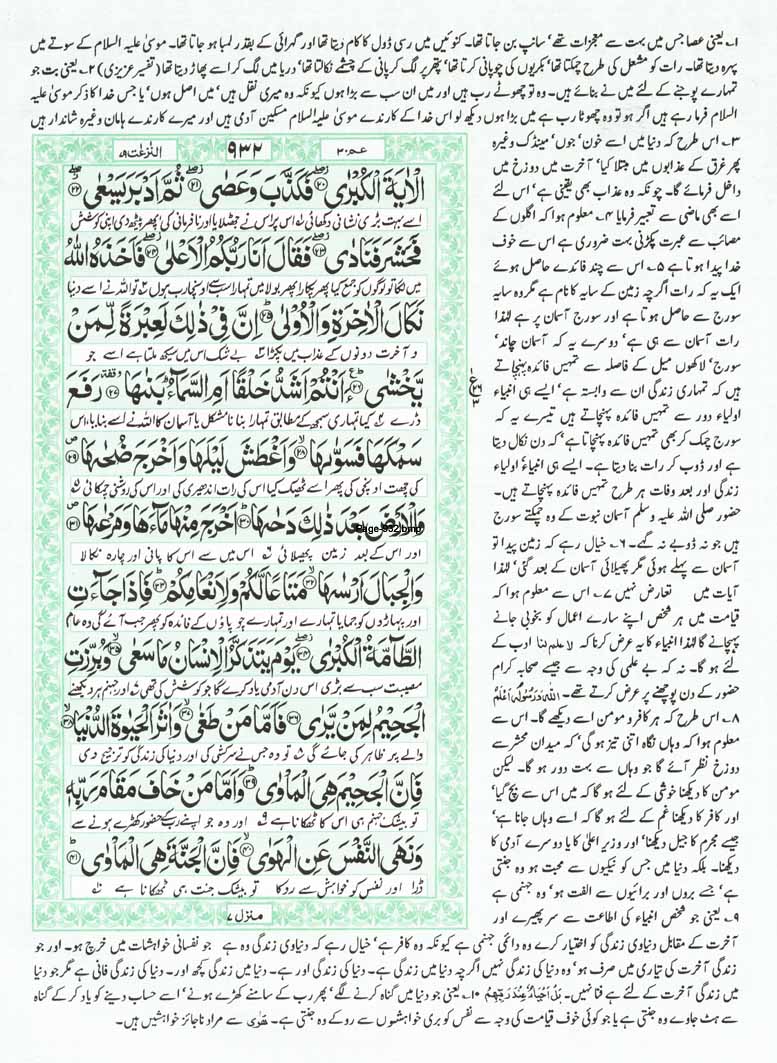 ۱۔ یعنی عصا جس میں بہت سے معجزات تھے' سانپ بن جاتا تھا۔ کنوئیں میں رسی ڈول کا کام دیتا تھا اور گہرائی کے بقدر لمبا ہو جاتا تھا۔ موسیٰ علیہ السلام کے سوتے میں
پہرہ دیتا تھا۔ رات کو مشعل کی طرح چمکتا تھا' بکریوں کی چوپانی کرتا تھا' پتھر پر لگ کر پانی کے چشمے نکالتا تھا' دریا میں لگ کر اسے پھاڑ دیتا تھا (تفسیر عزیزی) ۲۔ یعنی بت جو
تمہارے پوجنے کے لئے میں نے بنائے ہیں۔ وہ تو چھوٹے رب ہیں اور میں ان سب سے بڑا ہوں کیونکہ وہ میری نقل ہیں' میں اصل ہوں' یا جس خدا کا ذکر موسیٰ علیہ
السلام فرما رہے ہیں اگر ہو تو وہ چھوٹا رب ہے میں بڑا ہوں دیکھ لو اس خدا کے کارندے موسیٰ علیہ السلام مسکین آدمی ہیں اور میرے کارندے ہامان وغیرہ شاندار ہیں
النزعت ۷۹
۹۳۲
عم ۳۰
الْاٰیَةَ الْكُبْرٰى ﴿۲۰﴾ فَكَذَّبَ وَعَصٰى ﴿۲۱﴾ ثُمَّ اَدْبَرَ یَسْعٰى ﴿۲۲﴾
اسے بہت بڑی نشانی دکھائی ۱ اس پر اس نے جھٹلایا اور نافرمانی کی پھر پیٹھ دی اپنی کوشش
فَحَشَرَ فَنَادٰى ﴿۲۳﴾ فَقَالَ اَنَا رَبُّكُمُ الْاَعْلٰى ﴿۲۴﴾ فَاَخَذَهُ اللّٰهُ
میں لگا تو لوگوں کو جمع کیا پھر پکارا پھر بولا میں تمہارا سب سے اونچا رب ہوں ۲ تو اللہ نے اسے دنیا
نَكَالَ الْاٰخِرَةِ وَالْاُوْلٰى ﴿۲۵﴾ اِنَّ فِیْ ذٰلِكَ لَعِبْرَةً لِّمَنْ
و آخرت دونوں کے عذاب میں پکڑا ۳ بے شک اس میں سیکھ ملتا ہے اسے جو
یَّخْشٰى ﴿۲۶﴾ ءَاَنْتُمْ اَشَدُّ خَلْقًا اَمِ السَّمَآءُ بَنٰىهَا ﴿۲۷﴾ رَفَعَ
ڈرے ۴ کیا تمہاری سمجھ کے مطابق تمہارا بنانا مشکل یا آسمان کا اللہ نے اسے بنایا، اس
سَمْكَهَا فَسَوّٰىهَا ﴿۲۸﴾ وَاَغْطَشَ لَیْلَهَا وَاَخْرَجَ ضُحٰىهَا ﴿۲۹﴾
کی چھت اونچی کی پھر اسے ٹھیک کیا اس کی رات اندھیری کی اور اس کی روشنی چمکائی ۵
وَالْاَرْضَ بَعْدَ ذٰلِكَ دَحٰىهَا ﴿۳۰﴾ اَخْرَجَ مِنْهَا مَآءَهَا وَمَرْعٰىهَا ﴿۳۱﴾
اور اس کے بعد زمین پھیلائی ۶ اس میں سے اس کا پانی اور چارہ نکالا
وَالْجِبَالَ اَرْسٰىهَا ﴿۳۲﴾ مَتَاعًا لَّكُمْ وَلِاَنْعَامِكُمْ ﴿۳۳﴾ فَاِذَا جَآءَتِ
اور پہاڑوں کو جمایا تمہارے اور تمہارے چوپاؤں کے فائدہ کو پھر جب آئے گی وہ عام
الطَّآمَّةُ الْكُبْرٰى ﴿۳۴﴾ یَوْمَ یَتَذَكَّرُ الْاِنْسَانُ مَا سَعٰى ﴿۳۵﴾ وَبُرِّزَتِ
مصیبت سب سے بڑی اس دن آدمی یاد کرے گا جو کوشش کی تھی ۷ اور جہنم ہر دیکھنے
الْجَحِیْمُ لِمَنْ یَّرٰى ﴿۳۶﴾ فَاَمَّا مَنْ طَغٰى ﴿۳۷﴾ وَاٰثَرَ الْحَیٰوةَ الدُّنْیَا ﴿۳۸﴾
والے پر ظاہر کی جائے گی ۸ تو وہ جس نے سرکشی کی اور دنیا کی زندگی کو ترجیح دی
فَاِنَّ الْجَحِیْمَ هِیَ الْمَاْوٰى ﴿۳۹﴾ وَاَمَّا مَنْ خَافَ مَقَامَ رَبِّهٖ
تو بیشک جہنم ہی اس کا ٹھکانا ہے ۹ اور وہ جو اپنے رب کے حضور کھڑے ہونے سے
وَنَهَى النَّفْسَ عَنِ الْهَوٰى ﴿۴۰﴾ فَاِنَّ الْجَنَّةَ هِیَ الْمَاْوٰى ﴿۴۱﴾
ڈرا اور نفس کو خواہش سے روکا تو بیشک جنت ہی ٹھکانا ہے ۱۰
منزل ۷
۳۔ اس طرح کہ دنیا میں اسے خون' جوں' مینڈک وغیرہ
پھر غرق کے عذابوں میں مبتلا کیا' آخرت میں دوزخ میں
داخل فرمائے گا۔ چونکہ وہ عذاب بھی یقینی ہے' اس لئے
اسے بھی ماضی سے تعبیر فرمایا ۴۔ معلوم ہوا کہ اگلوں کے
مصائب سے عبرت پکڑنی بہت ضروری ہے اس سے خوف
خدا پیدا ہوتا ہے ۵۔ اس سے چند فائدے حاصل ہوئے
ایک یہ کہ رات اگرچہ زمین کے سایہ کا نام ہے مگر وہ سایہ
سورج سے حاصل ہوتا ہے اور سورج آسمان پر ہے لہٰذا
رات آسمان سے ہی ہے' دوسرے یہ کہ آسمان چاند'
سورج' لاکھوں میل کے فاصلہ سے تمہیں فائدہ پہنچاتے
ہیں کہ تمہاری زندگی ان سے وابستہ ہے' ایسے ہی انبیاء
اولیاء دور سے تمہیں فائدہ پہنچاتے ہیں تیسرے یہ کہ
سورج چمک کر بھی تمہیں فائدہ پہنچاتا ہے' کہ دن نکال دیتا
ہے اور ڈوب کر رات بنا دیتا ہے۔ ایسے ہی انبیاء' اولیاء
زندگی اور بعد وفات ہر طرح تمہیں فائدہ پہنچاتے ہیں۔
حضور صلی اللہ علیہ وسلم آسمان نبوت کے وہ چمکتے سورج
ہیں جو نہ ڈوبے نہ گہے۔ ۶۔ خیال رہے کہ زمین پیدا تو
آسمان سے پہلے ہوئی مگر پھیلائی آسمان کے بعد گئی' لہٰذا
آیات میں تعارض نہیں ۷۔ اس سے معلوم ہوا کہ
قیامت میں ہر شخص اپنے سارے اعمال کو بخوبی جانے
پہچانے گا لہٰذا انبیاء کا یہ عرض کرنا کہ لا علم لنا ادب کے
لئے ہو گا۔ نہ کہ بے علمی کی وجہ سے جیسے صحابہ کرام
حضور کے دن پوچھنے پر عرض کرتے تھے۔ اللہ ورسولہ اعلم
۸۔ اس طرح کہ ہر کافر و مومن اسے دیکھے گا۔ اس سے
معلوم ہوا کہ وہاں نگاہ اتنی تیز ہو گی' کہ میدان محشر سے
دوزخ نظر آئے گا جو وہاں سے بہت دور ہو گا۔ لیکن
مومن کا دیکھنا خوشی کے لئے ہو گا کہ میں اس سے بچ گیا'
اور کافر کا دیکھنا غم کے لئے ہو گا کہ اسے وہاں جانا ہے'
جیسے مجرم کا جیل دیکھنا' اور وزیر اعلیٰ کا یا دوسرے آدمی کا
دیکھنا۔ بلکہ دنیا میں جس کو نیکیوں سے محبت ہو وہ جنتی
ہے' جسے بروں اور برائیوں سے الفت ہو' وہ جہنمی ہے
۹۔ یعنی جو شخص انبیاء کی اطاعت سے سر پھیرے اور
آخرت کے مقابل دنیاوی زندگی کو اختیار کرے وہ دائمی جہنمی ہے کیونکہ وہ کافر ہے' خیال رہے کہ دنیاوی زندگی وہ ہے جو نفسانی خواہشات میں خرچ ہو۔ اور جو
زندگی آخرت کی تیاری میں صرف ہو' وہ دنیا کی زندگی نہیں اگرچہ دنیا میں زندگی ہے۔ دنیا کی زندگی اور ہے۔ دنیا میں زندگی کچھ اور۔ دنیا کی زندگی فانی ہے مگر جو دنیا
میں زندگی آخرت کے لئے ہے فنا نہیں۔ بل احیاء عند ربھم ۱۰۔ یعنی جو دنیا میں گناہ کرنے لگے' پھر رب کے سامنے کھڑے ہونے' اسے حساب دینے کو یاد کر کے گناہ
سے ہٹ جاوے وہ جنتی ہے یا جو کوئی خوف قیامت کی وجہ سے نفس کو بری خواہشوں سے روکے وہ جنتی ہے۔ ھویٰ سے مراد ناجائز خواہشیں ہیں۔
Page-932.bmp